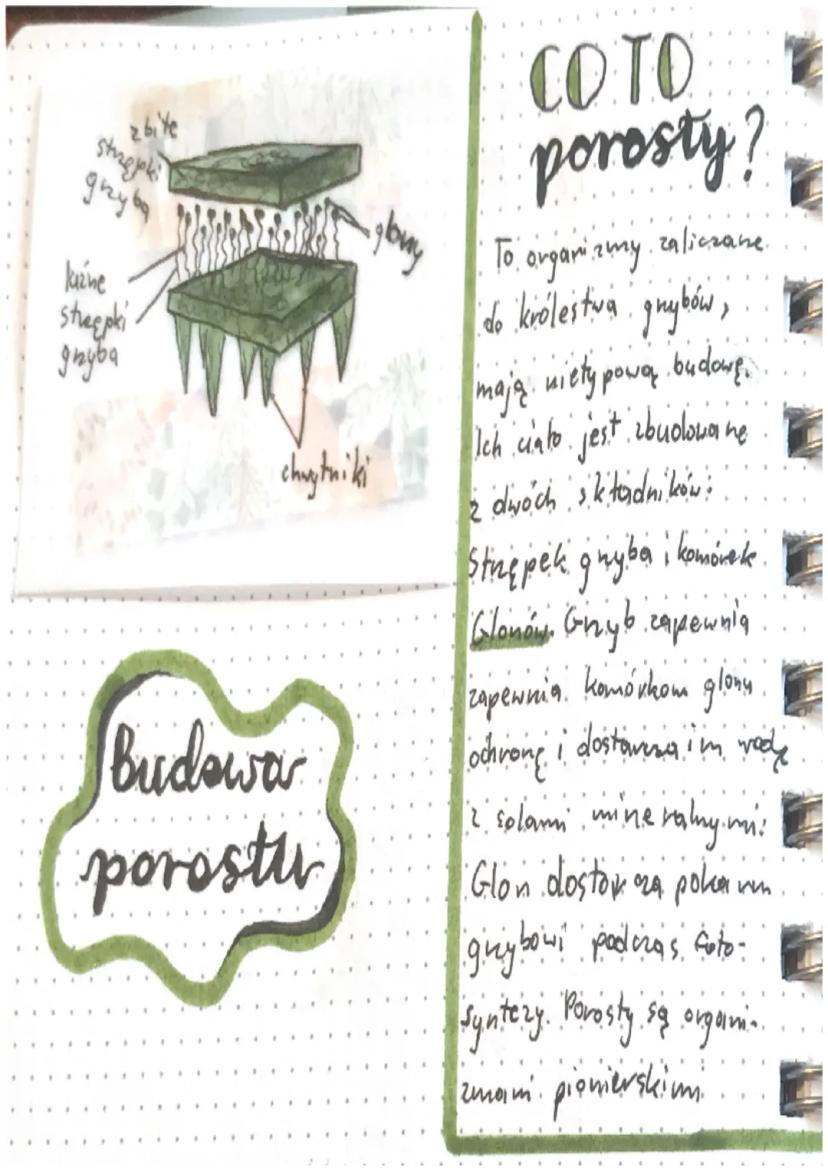 zbite
strzępki
grzyba
glony
luźne
strzępki
grzyba
chwytniki
Budowa
porostu
CO TO
porosty?
To organizmy zaliczane
do królestwa grzybów,
mają nietypową budowę.
Ich ciało jest zbudowane
z dwóch składników:
Strzępek grzyba i komórek
Glonów. Grzyb zapewnia
zapewnia komórkom glonu
ochronę i dostarcza im wodę
z solami mineralnymi.
Glon dostarcza pokarm
grzybowi podczas foto-
syntezy. Porosty są organi-
zmami pionierskimi